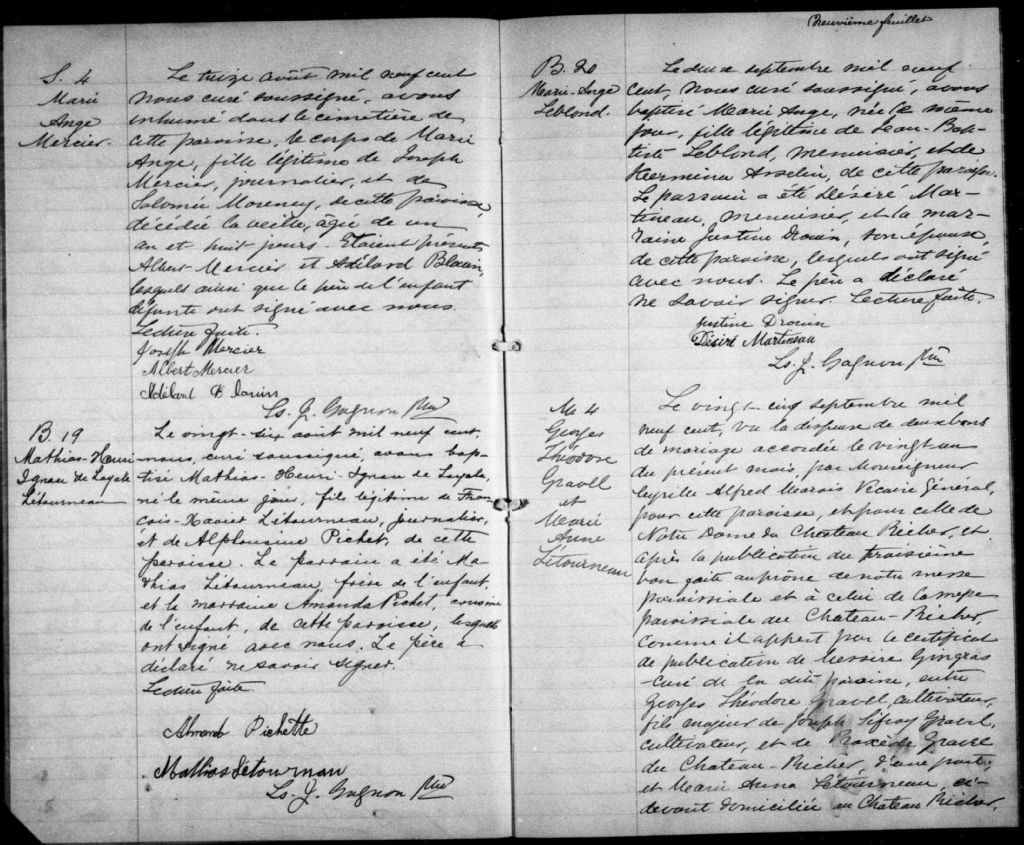 S. 4
Marie
Ange
Mercier.
Le treize août mil neuf cent
nous curé soussigné, avons
inhumé dans le cimetière de
cette paroisse, le corps de Marie
Ange, fille légitime de Joseph
Mercier, journalier, et de
Salomée Morency, de cette paroisse,
décédée la veille, âgée de un
an et huit jours. Etaient présents
Albert Mercier et Adélard Blouin,
lesquels ainsi que le père de l'enfant
défunte ont signé avec nous.
Lecture faite.
Joseph Mercier
Albert Mercier
Ls. J. Gagnon Ptre
B. 19
Mathias-Henri
Ignace de Loyola
Létourneau
Le vingt-six août mil neuf cent,
nous, curé soussigné, avons bap-
tisé Mathias-Henri-Ignace de Loyola,
né le même jour, fils légitime de Fran-
çois-Xavier Létourneau, journalier,
et de Alphonsine Pichet, de cette
paroisse. Le parrain a été Ma-
thias Létourneau, frère de l'enfant,
et la marraine Amanda Pichet, cousine
de l'enfant, de cette paroisse, lesquels
ont signé avec nous. Le père a
déclaré ne savoir signer.
Lecture faite.
Amanda Pichette
Mathias Létournau
Ls. J. Gagnon Ptre
feuillet
B. 20
Marie-Ange
Leblond.
Le deux septembre mil neuf
cent, nous curé soussigné, avons
baptisé Marie Ange, née le même
jour, fille légitime de Jean-Bap-
tiste Leblond, menuisier, et de
Hermina Asselin, de cette paroisse.
Le parrain a été Désiré Mar-
tineau, menuisier, et la mar-
raine Justine Drouin, son épouse,
de cette paroisse, lesquels ont signé
avec nous. Le père a déclaré
ne savoir signer. Lecture faite.
Justine Drouin
Désiré Martineau
Ls. J. Gagnon Ptre
M 4
Georges
Théodore
Gravel
et
Marie
Anne
Létourneau
Le vingt-cinq septembre mil
neuf cent, vu la dispense de deux bans
de mariage accordée le vingt un
du présent mois, par Monseigneur
Cyrille Alfred Marois Vicaire Général,
pour cette paroisse, et pour celle de
Notre Dame du Chateau Richer, et
après la publication du troisième
ban faite au prône de notre messe
paroissiale et à celui de la messe
paroissiale du Chateau-Richer,
comme il appert par le certificat
de publication de Messire Gingras
curé de la dite paroisse, entre
Georges Théodore Gravel, cultivateur,
fils majeur de Joseph Lefroy Gravel,
cultivateur, et de Praxède Gravel
du Chateau-Richer, d'une part;
et Marie Anna Létourneau, ci-
devant domiciliée au Chateau Richer,